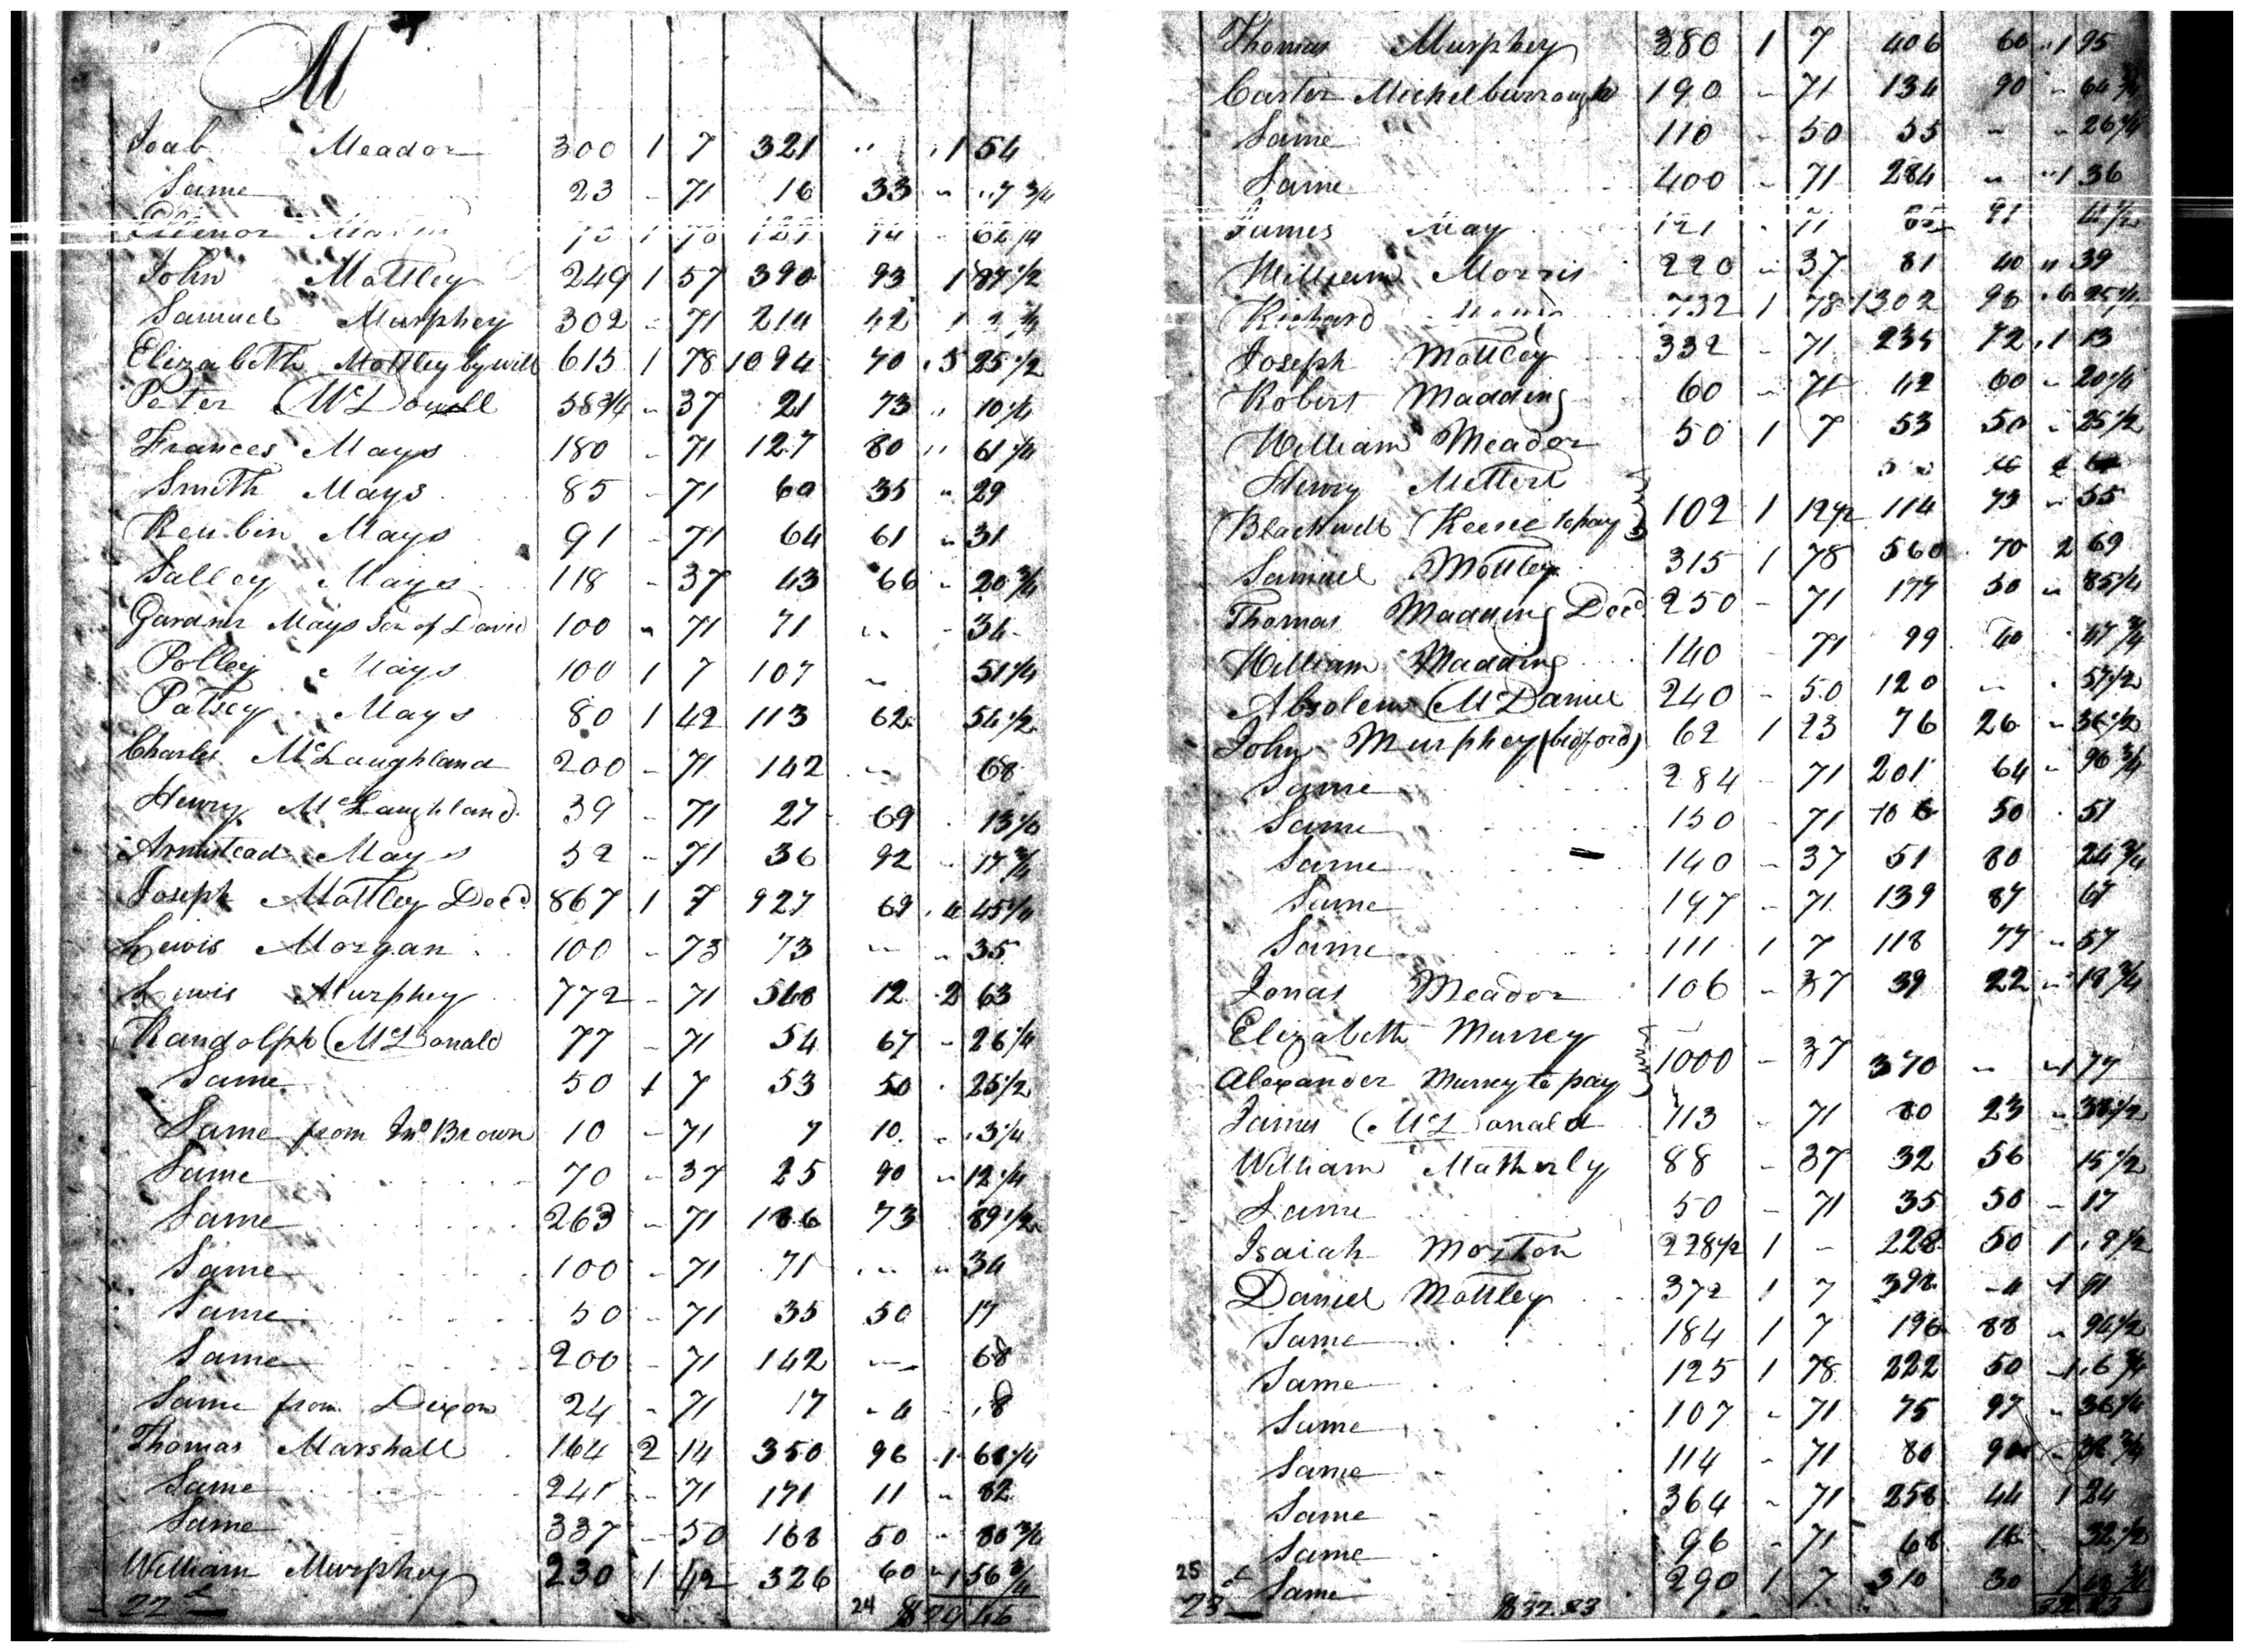 M
Joab Meador 300 1 7 321 " " 1 54
Same 23 - 71 16 33 " " 7 3/4
Elenor 1 70 62 1/4
John Mottley 249 1 57 390 93 1 87 1/2
Samuel Murphey 302 - 71 214 42 1 2 3/4
Elizabeth Mottley by will 615 1 78 1094 70 5 25 1/2
Peter McDowell 58 3/4 - 37 21 73 " 10 1/4
Frances Mays 180 - 71 127 80 " 61 1/4
Smith Mays 85 - 71 60 35 " 29
Reubin Mays 91 - 71 64 61 " 31
Salley Mays 118 - 37 43 66 - 20 3/4
Gardner Mays Son of David 100 - 71 71 " - 34
Polley Mays 100 1 7 107 " 51 1/4
Patsey Mays 80 1 42 113 62 54 1/2
Charles McLaughland 200 - 71 142 " 68
Henry McLaughland 39 - 71 27 69 13
Armistead Mays 52 - 71 36 92 - 17 3/4
Joseph Mottley Decd 867 1 7 927 69 4 45 1/4
Lewis Morgan 100 - 73 73 " " 35
Lewis Murphey 772 - 71 548 12 2 63
Randolph McDonald 77 - 71 54 67 - 26 1/4
Same 50 1 7 53 50 25 1/2
Same from Jno Brown 10 - 71 7 10 - 3 1/4
Same 70 - 37 25 90 - 12 1/4
Same 263 - 71 186 73 89 1/2
Same 100 - 71 71 " " 34
Same 50 - 71 35 50 17
Same 200 - 71 142 " 68
Same from Dixon 24 - 71 17 - 4 - 8
Thomas Marshall 164 2 14 350 96 1 68 1/4
Same 241 - 71 171 11 " 82
Same 337 - 50 168 50 - 80 3/4
William Murphey 230 1 42 326 60 " 1 56 3/4
22d 24 $29 46
Thomas Murphey 380 1 7 406 60 " 1 95
Carter Michelburrough 190 - 71 134 90 - 64 3/4
Same 110 - 50 55 " " 26 1/4
Same 400 - 71 284 " " 1 36
James May 121 - 71 85 91 41 1/2
William Morris 220 - 37 81 40 " 39
Richard 732 1 78 1302 96 6 25 1/2
Joseph Mottley 332 - 71 235 72 1 13
Robert Madding 60 - 71 42 60 - 20 1/4
William Meador 50 1 7 53 50 - 25 1/2
Henry
Blackwell Keene to pay 102 1 12 1/2 114 73 - 55
Samuel Mottley 315 1 78 560 70 2 69
Thomas Madding Decd 250 - 71 177 50 " 85 1/4
William Madding 140 - 71 99 40 47 3/4
Absolem McDaniel 240 - 50 120 " 57 1/2
John Murphey (bedford) 62 1 23 76 26 - 36 1/2
Same 284 - 71 201 64 - 96 3/4
Same 150 - 71 106 50 51
Same 140 - 37 51 80 24 3/4
Same 197 - 71 139 87 67
Same 111 1 7 118 77 - 57
Jonas Meador 106 - 37 39 22 - 18 3/4
Elizabeth Murrey
Alexander Murrey to pay 1000 - 37 370 " " 1 77
James McDonald 113 - 71 80 23 - 38 1/2
William Matherly 88 - 37 32 56 15 1/2
Same 50 - 71 35 50 - 17
Isaiah Morton 228 1/2 1 - 228 50 1 9 1/2
Daniel Mottley 372 1 7 398 - 4 1 91
Same 184 1 7 196 88 - 94 1/2
Same 125 1 78 222 50 1 6 3/4
Same 107 - 71 75 97 - 36 1/4
Same 114 - 71 80 38 3/4
Same 364 - 71 258 44 1 24
Same 96 - 71 68 16 32 1/2
25 Same 290 1 7 310 30 1
23d $32.23